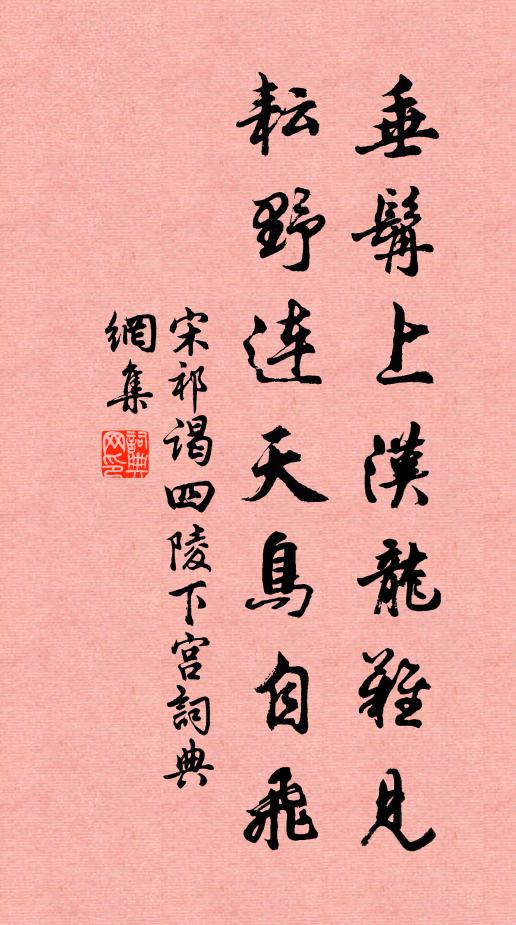 垂髯上漢龍難見
耘野連天鳥自飛
宋祁謁四陵下宮詞典
網集
詞典網印